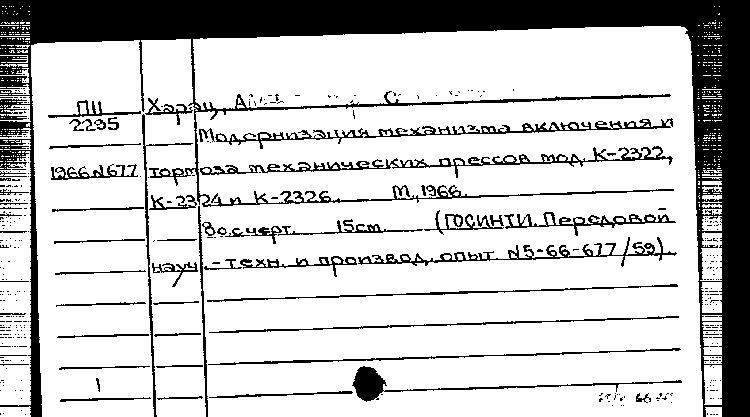 ПII Харац, А
2295
Модернизация механизма включения и
1966 N677 тормоза механических прессов мод. К-2322,
К-2324 и К-2326. М., 1966.
8о.с черт. 15cm. (ГОСИНТИ. Передовой
науч.-техн. и производ. опыт N5-66-677/59).
1
66